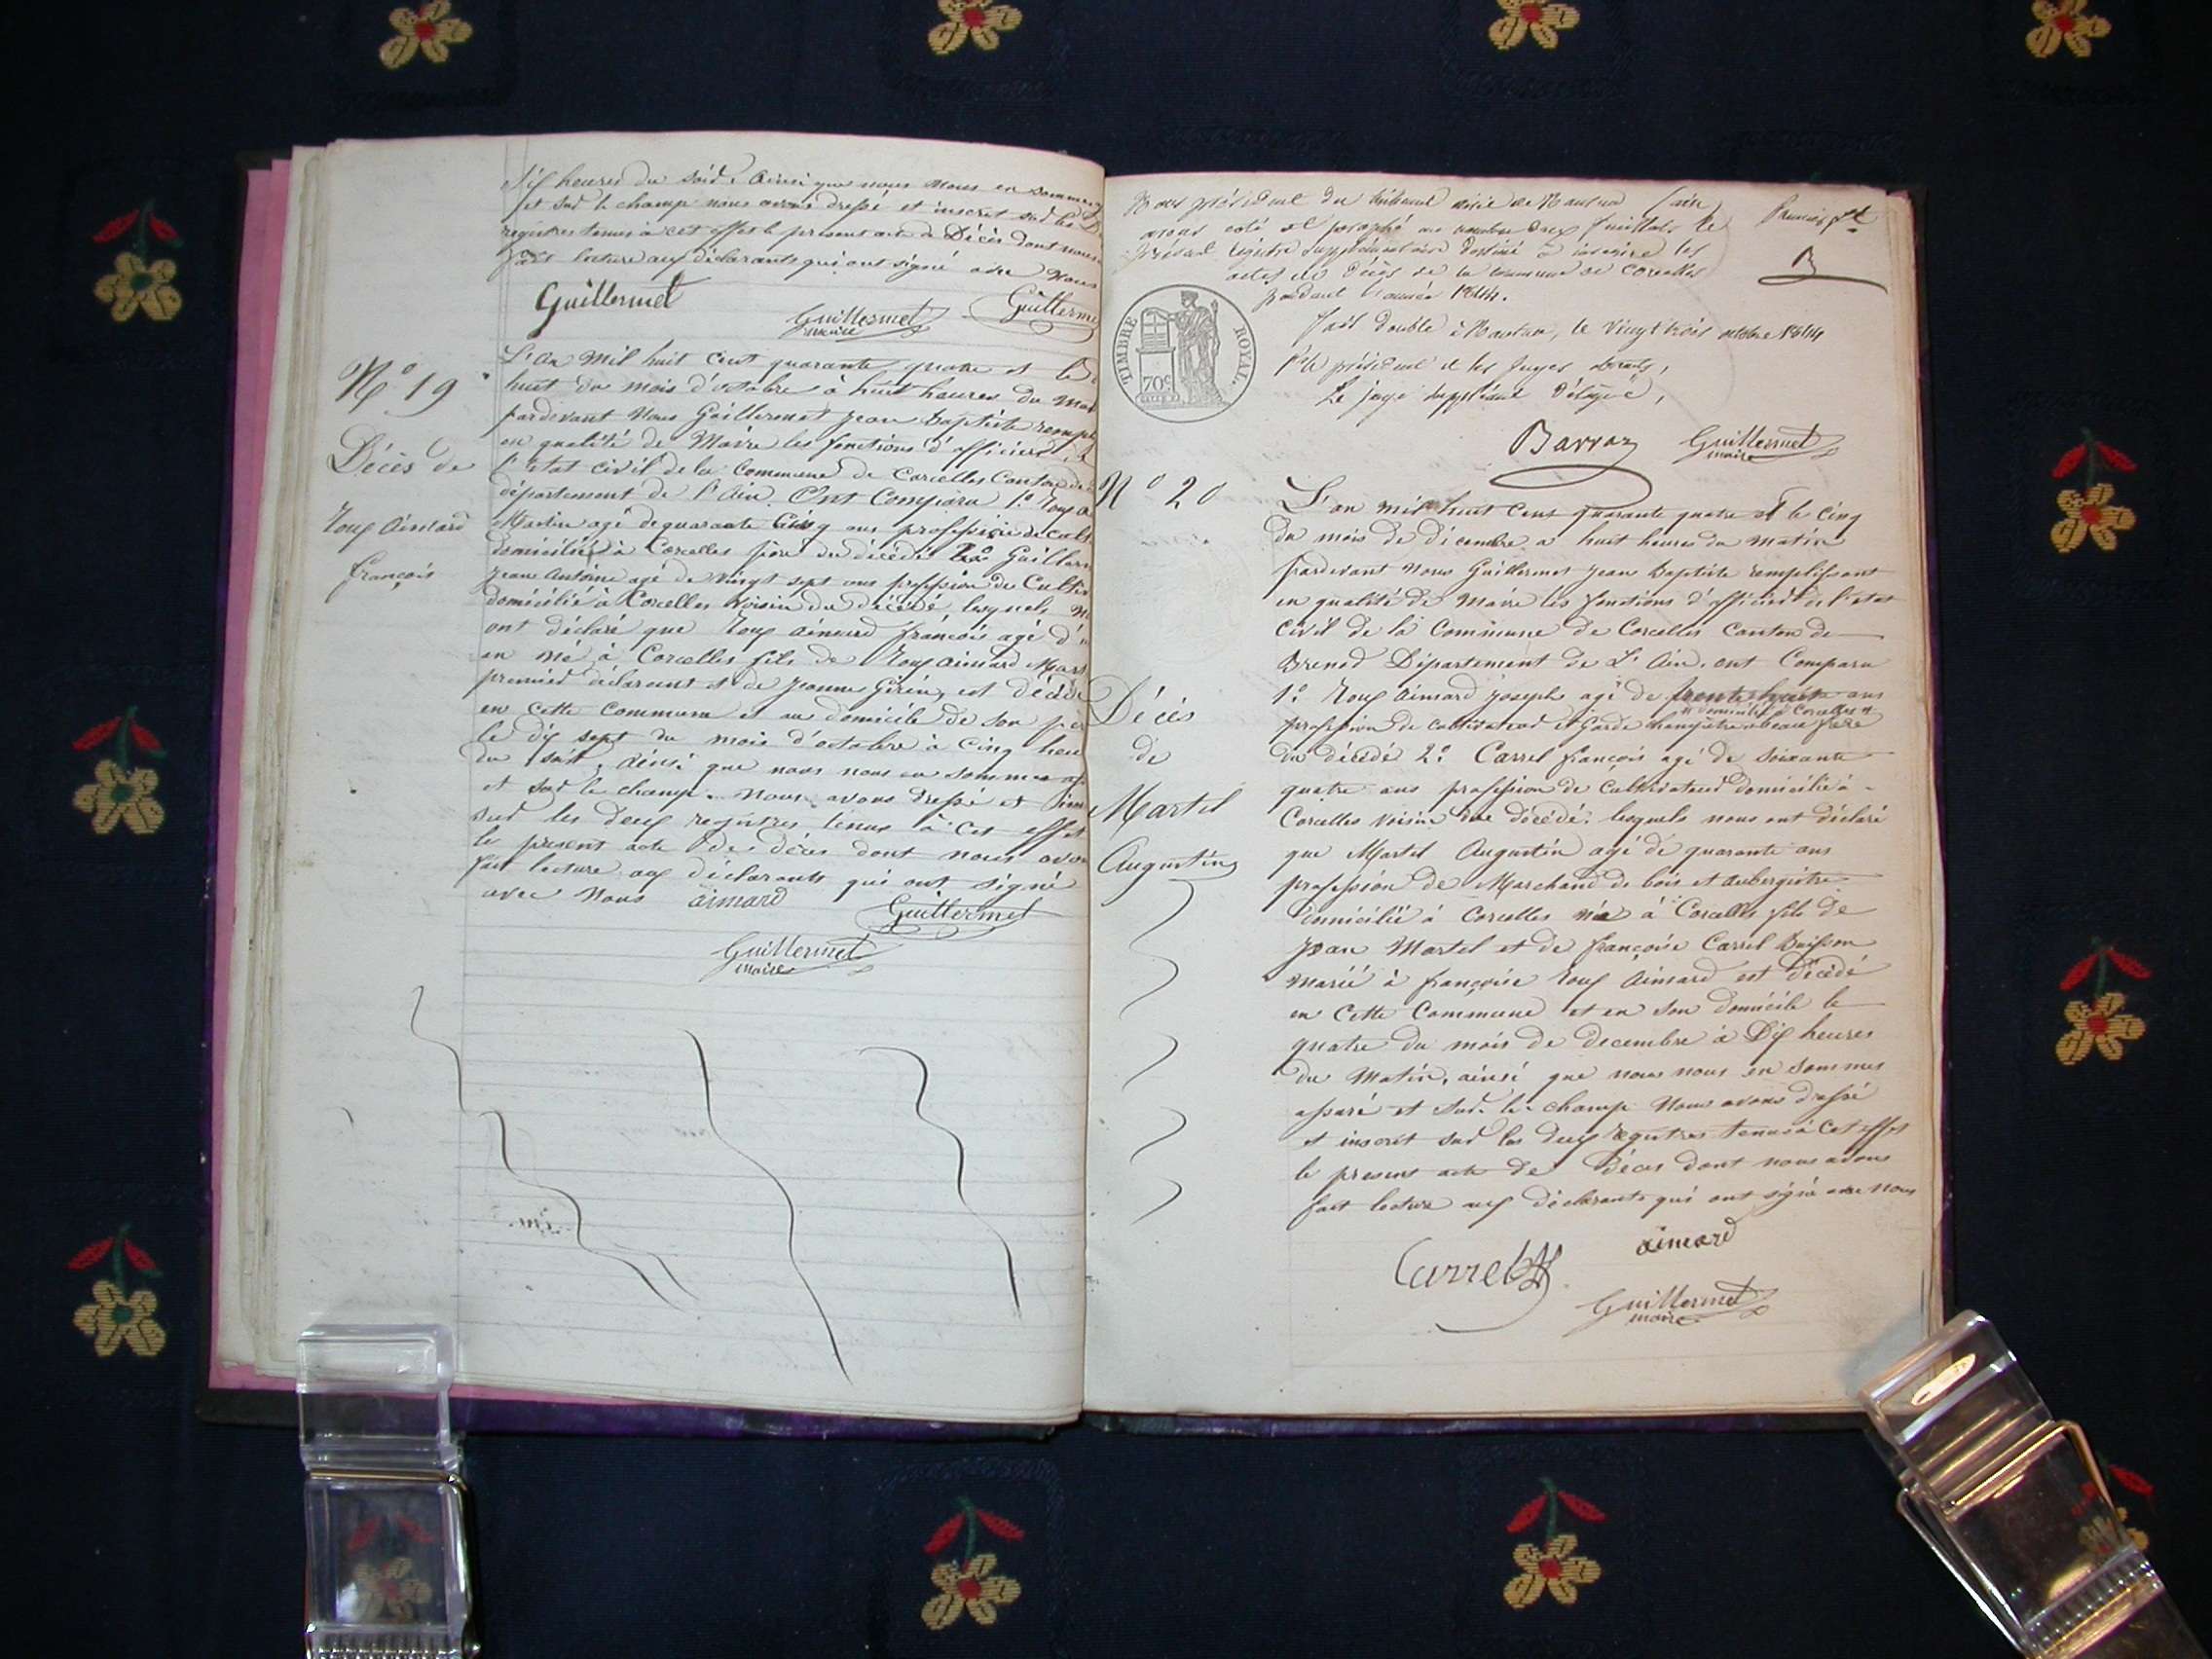 Six heures du soir. ainsi que nous nous en sommes
et sur le champ nous avons dressé et inscrit sur les
registres tenus à cet effet le present acte de Décès dont nous
fait lecture aux déclarants qui ont signé avec Nous
Guillermet
Guillermet
maire
Guillerme
N° 19
Décès de
Roux Aimard
françois
L'an Mil huit cent quarante quatre et le
huit du mois d'octobre à huit heures du mat
pardevant Nous Guillermet Jean Baptiste rempli
en qualité de Maire les fonctions d'officier de
l'état civil de la Commune de Corcelles Canton de
département de l'Ain. Ont Comparu 1° Roux a
Martin agé de quarante cinq ans profession de cult
domicilié à Corcelles père du décédé 2° Guillerm
Jean Antoine agé de vingt sept ans profession de Cultiv
domicilié à Corcelles voisin du décédé lesquels n
ont déclaré que Roux aimard françois agé d'u
an né à Corcelles fils de Roux aimard Mart
premier déclarant et de Jeanne Girin, est décédé
en cette Commune et au domicile de son pèr
le dix sept du mois d'octobre à cinq heu
du soir. ainsi que nous nous en sommes as
et sur le champ. nous avons dressé et ins
sur les deux registres tenus à cet effet
le present acte de décès dont nous avon
fait lecture aux déclarants qui ont signé
avec Nous aimard
Guillermet
Guillermet
maire
Nous président du tribunal civil de Nantua (ain
avons coté et paraphé au nombre deux feuillets le
présent registre supplémentaire destiné à inscrire les
actes de décès de la commune de Corcelles
pendant l'année 1844.
Premier ft
B
TIMBRE ROYAL.
70c
fait double à Nantua, le vingt trois octobre 1844
Pr le président et les Juges absents,
Le juge suppléant délégué,
Barraz
Guillermet
maire
N° 20
Décès
de
Martel
Augustin
L'an mil huit cent quarante quatre et le cinq
du mois de décembre a huit heures du matin
pardevant Nous Guillermet Jean Baptiste remplissant
en qualité de Maire les fonctions d'officier de l'état
civil de la Commune de Corcelles Canton de
Brenod Département de L'Ain. ont Comparu
1° Roux Aimard Joseph agé de trente ans
domicilié à Corcelles
profession de cultivateur et Garde champêtre beau frère
du décédé 2° Carrel françois agé de soixante
quatre ans profession de Cultivateur domicilié à
Corcelles voisin du décédé. lesquels nous ont déclaré
que Martel Augustin agé de quarante ans
profession de Marchand de bois et aubergiste
domicilié à Corcelles né à Corcelles fils de
Jean Martel et de françoise Carrel Buisson
marié à françoise Roux Aimard est décédé
en Cette Commune et en son domicile le
quatre du mois de decembre à Dix heures
du Matin, ainsi que nous nous en sommes
assuré et sur le champ Nous avons dressé
et inscrit sur les deux registres tenus à cet effet
le present acte de Décès dont nous avons
fait lecture aux déclarants qui ont signé avec nous
Carrel
aimard
Guillermet
maire